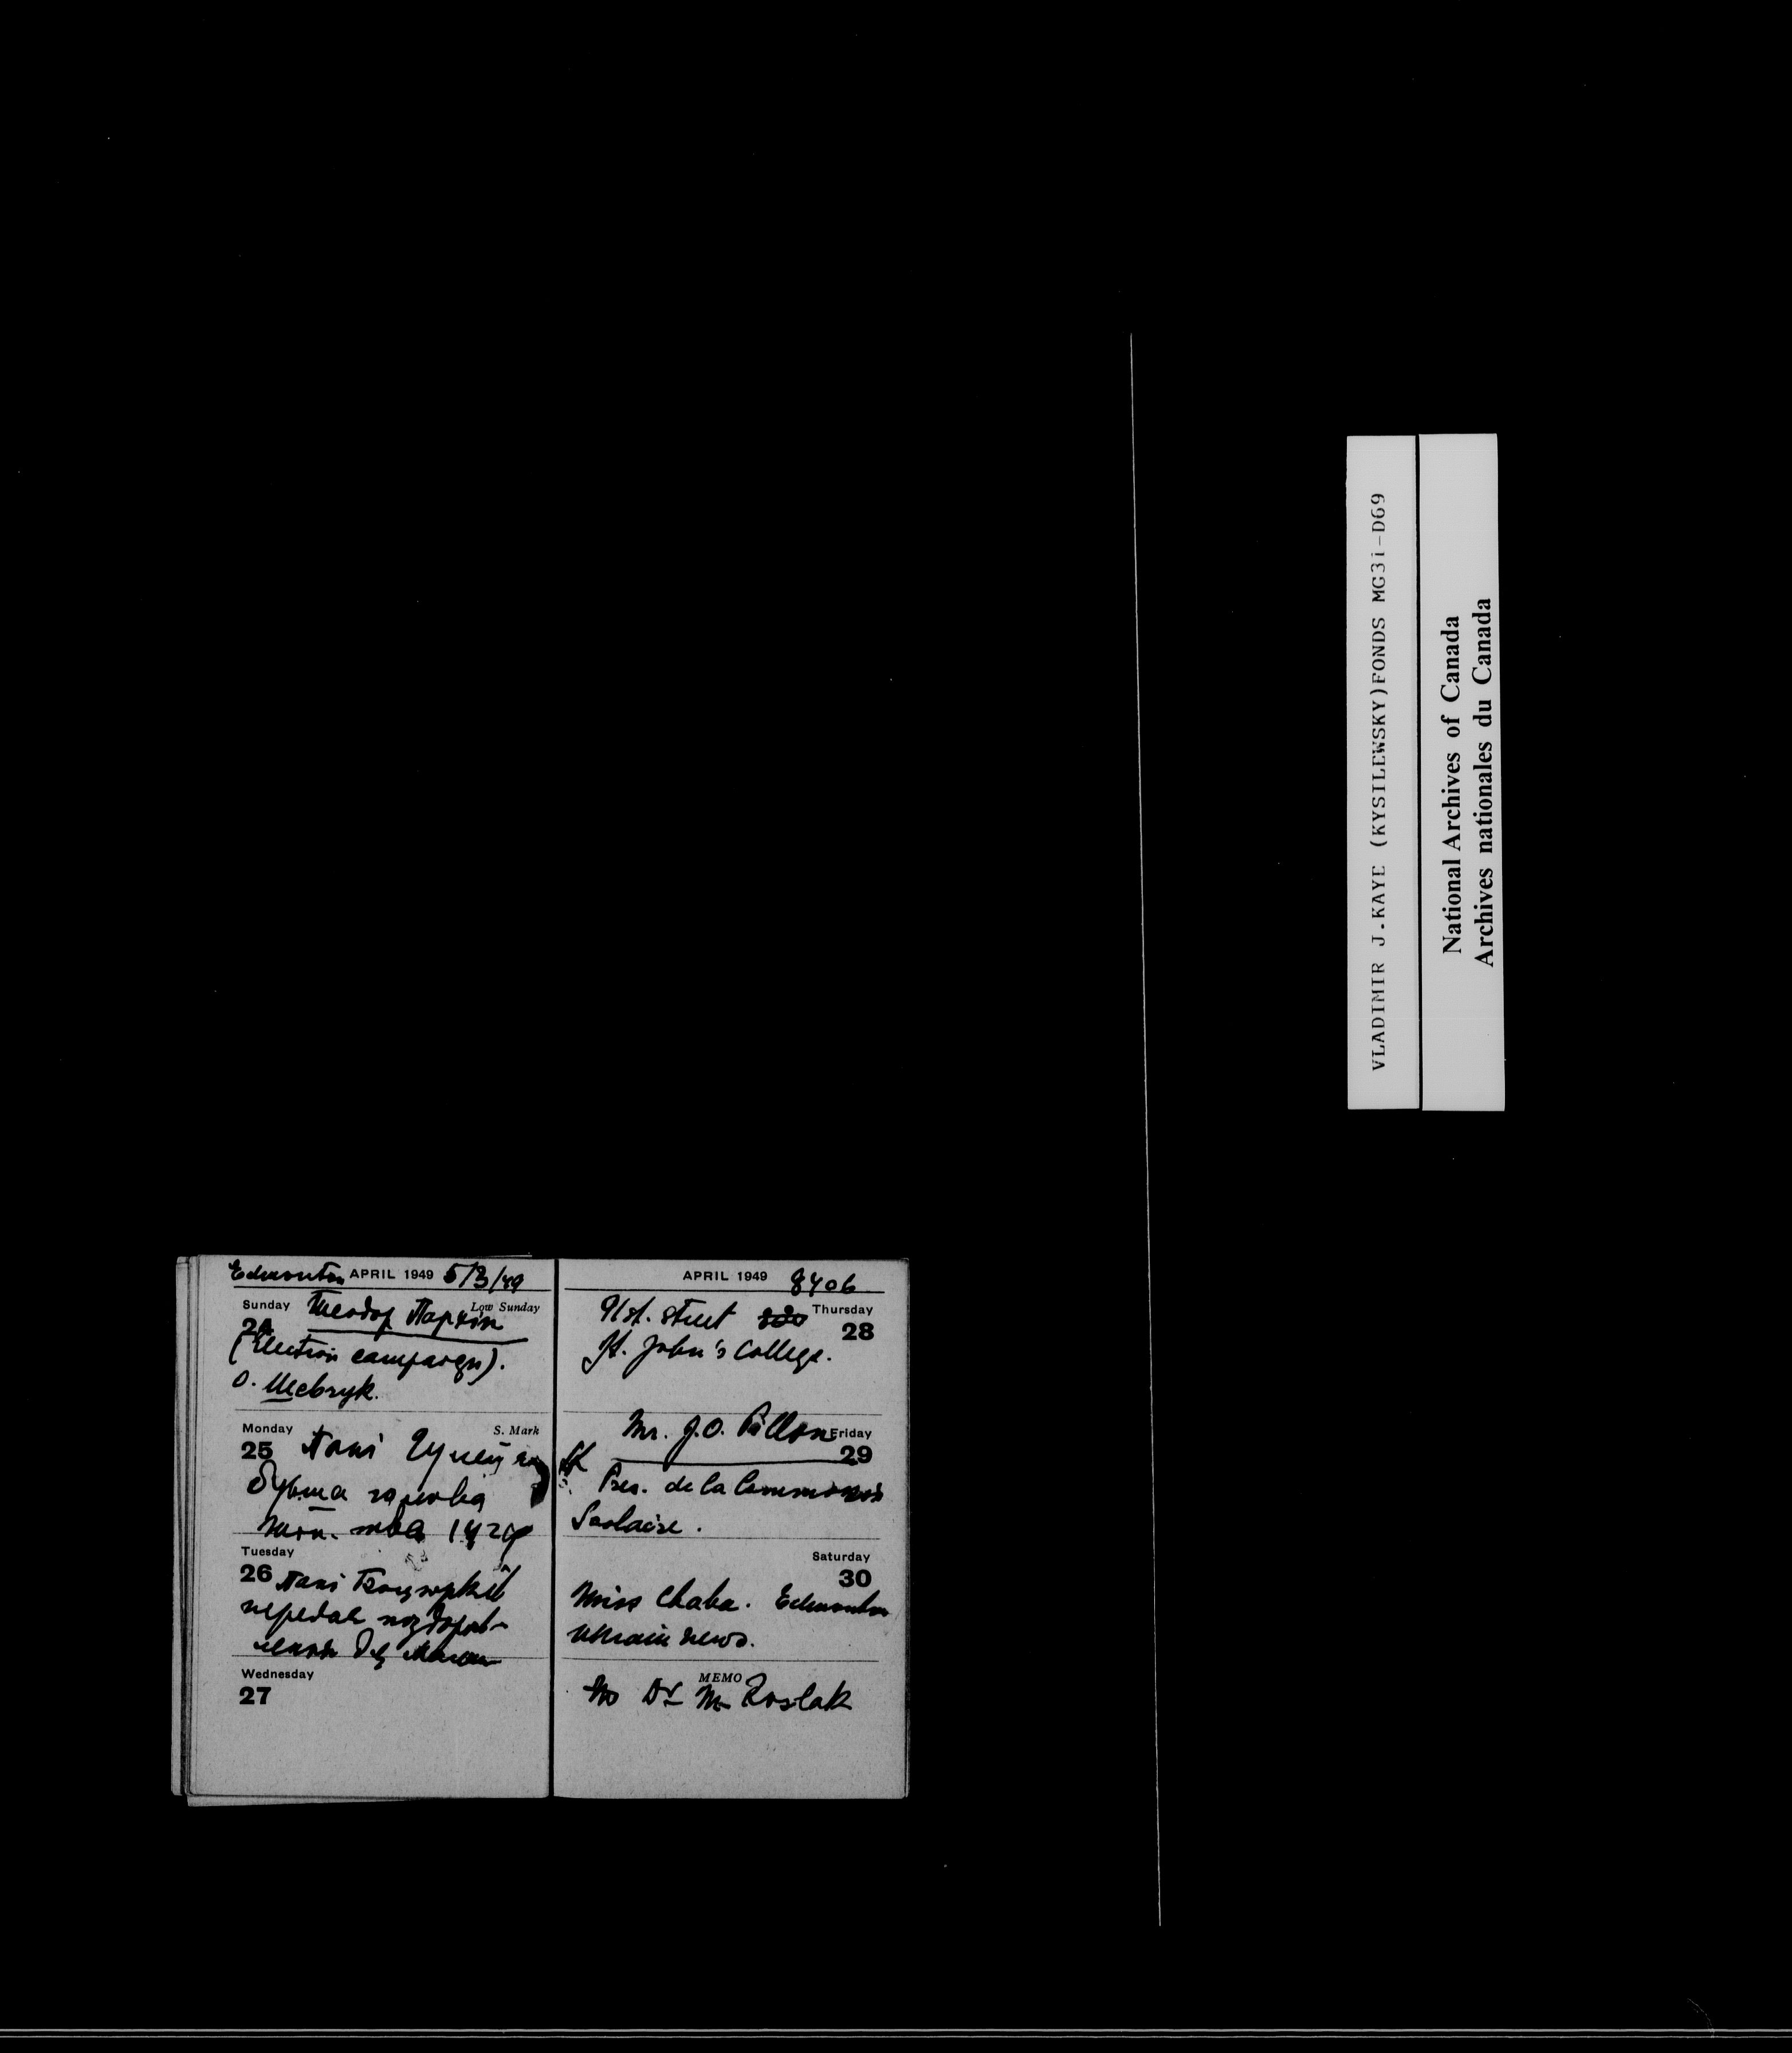 Edmonton APRIL 1949 5/3/49
Sunday Теодор Low Sunday
24
(Election campaign).
O.
Monday S. Mark
25 Пані
бувша голова
1929
Tuesday
26 Пані
передає поздоров-
лення для
Wednesday
27
APRIL 1949 8406
91st. street Thursday
28
St. John's College.
Mr. J.O. Pillon Friday
29
Pres. de la Commission
Scolaire.
Saturday
30
Miss Chaba. Edmonton
Ukrain news.
MEMO
Dr M Roslak
VLADIMIR J.KAYE (KYSILEWSKY)FONDS MG3i-D69
National Archives of Canada
Archives nationales du Canada